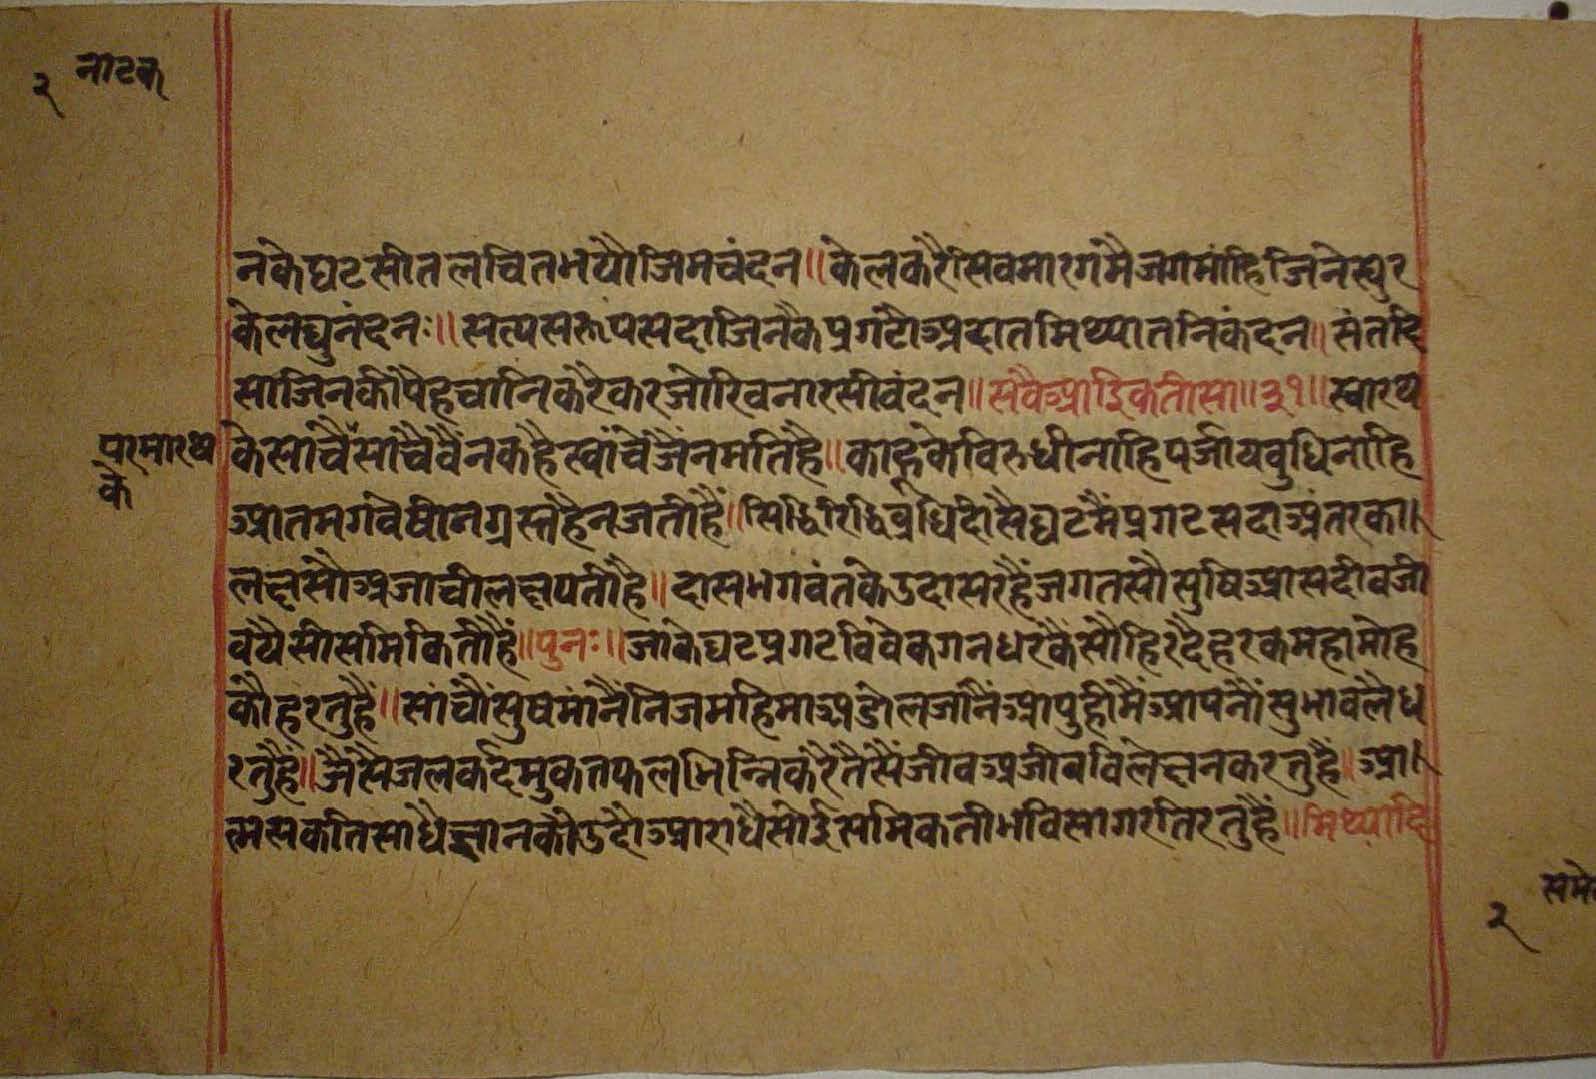 २ नाटक
नकेघटसीतलचितभयौजिमचंदन॥केलकरैसिवमारगमैजगमांहिजिनेस्युर
केलघुनंदनः॥सत्यसरूपसदाजिनकैप्रगटौअदातमिथ्यातनिकंदन॥संतदि
साजिनकीपैहचानिकरैकरजोरिवनारसीवंदन॥सवैआइकतीसा॥३१॥स्वारथ
परमारथ के
केसांचैसांचैवैनकहैस्वांचेजैनमतिहै॥काहूकेविरुधीनाहिपर्जायबुधिनाहि
आतमगवेषीनग्रस्तहैनजतीहैं॥सिद्धिरिद्धिव्रधिदीसैघटमैंप्रगटसदाअंतरका।
लछसौअजाचीलछपतीहै॥दासभगवंतकेउदासरहैंजगतसौसुषिआसदीवजी
वयैसीसमिकितीहैं॥पुनः॥जाकेघटप्रगटविवेकगनधरकैसौहिरदैहरकमहामोह
कौहरतुहैं॥सांचौंसुषमांनैंनिजमहिमाअडोलजांनैंआपुहीमैंआपनौंसुभावलैध
रतुहैं॥जैसैजलकर्दमुकतफलभिन्निकरैतैसैंजीवअजीवविलेछनकरतुहैं॥आ।
त्मसकतिसाधैज्ञानकौउदौआराधैसोईसमिकतीभविसागरतिरतुहैं॥मिथ्यादि
२